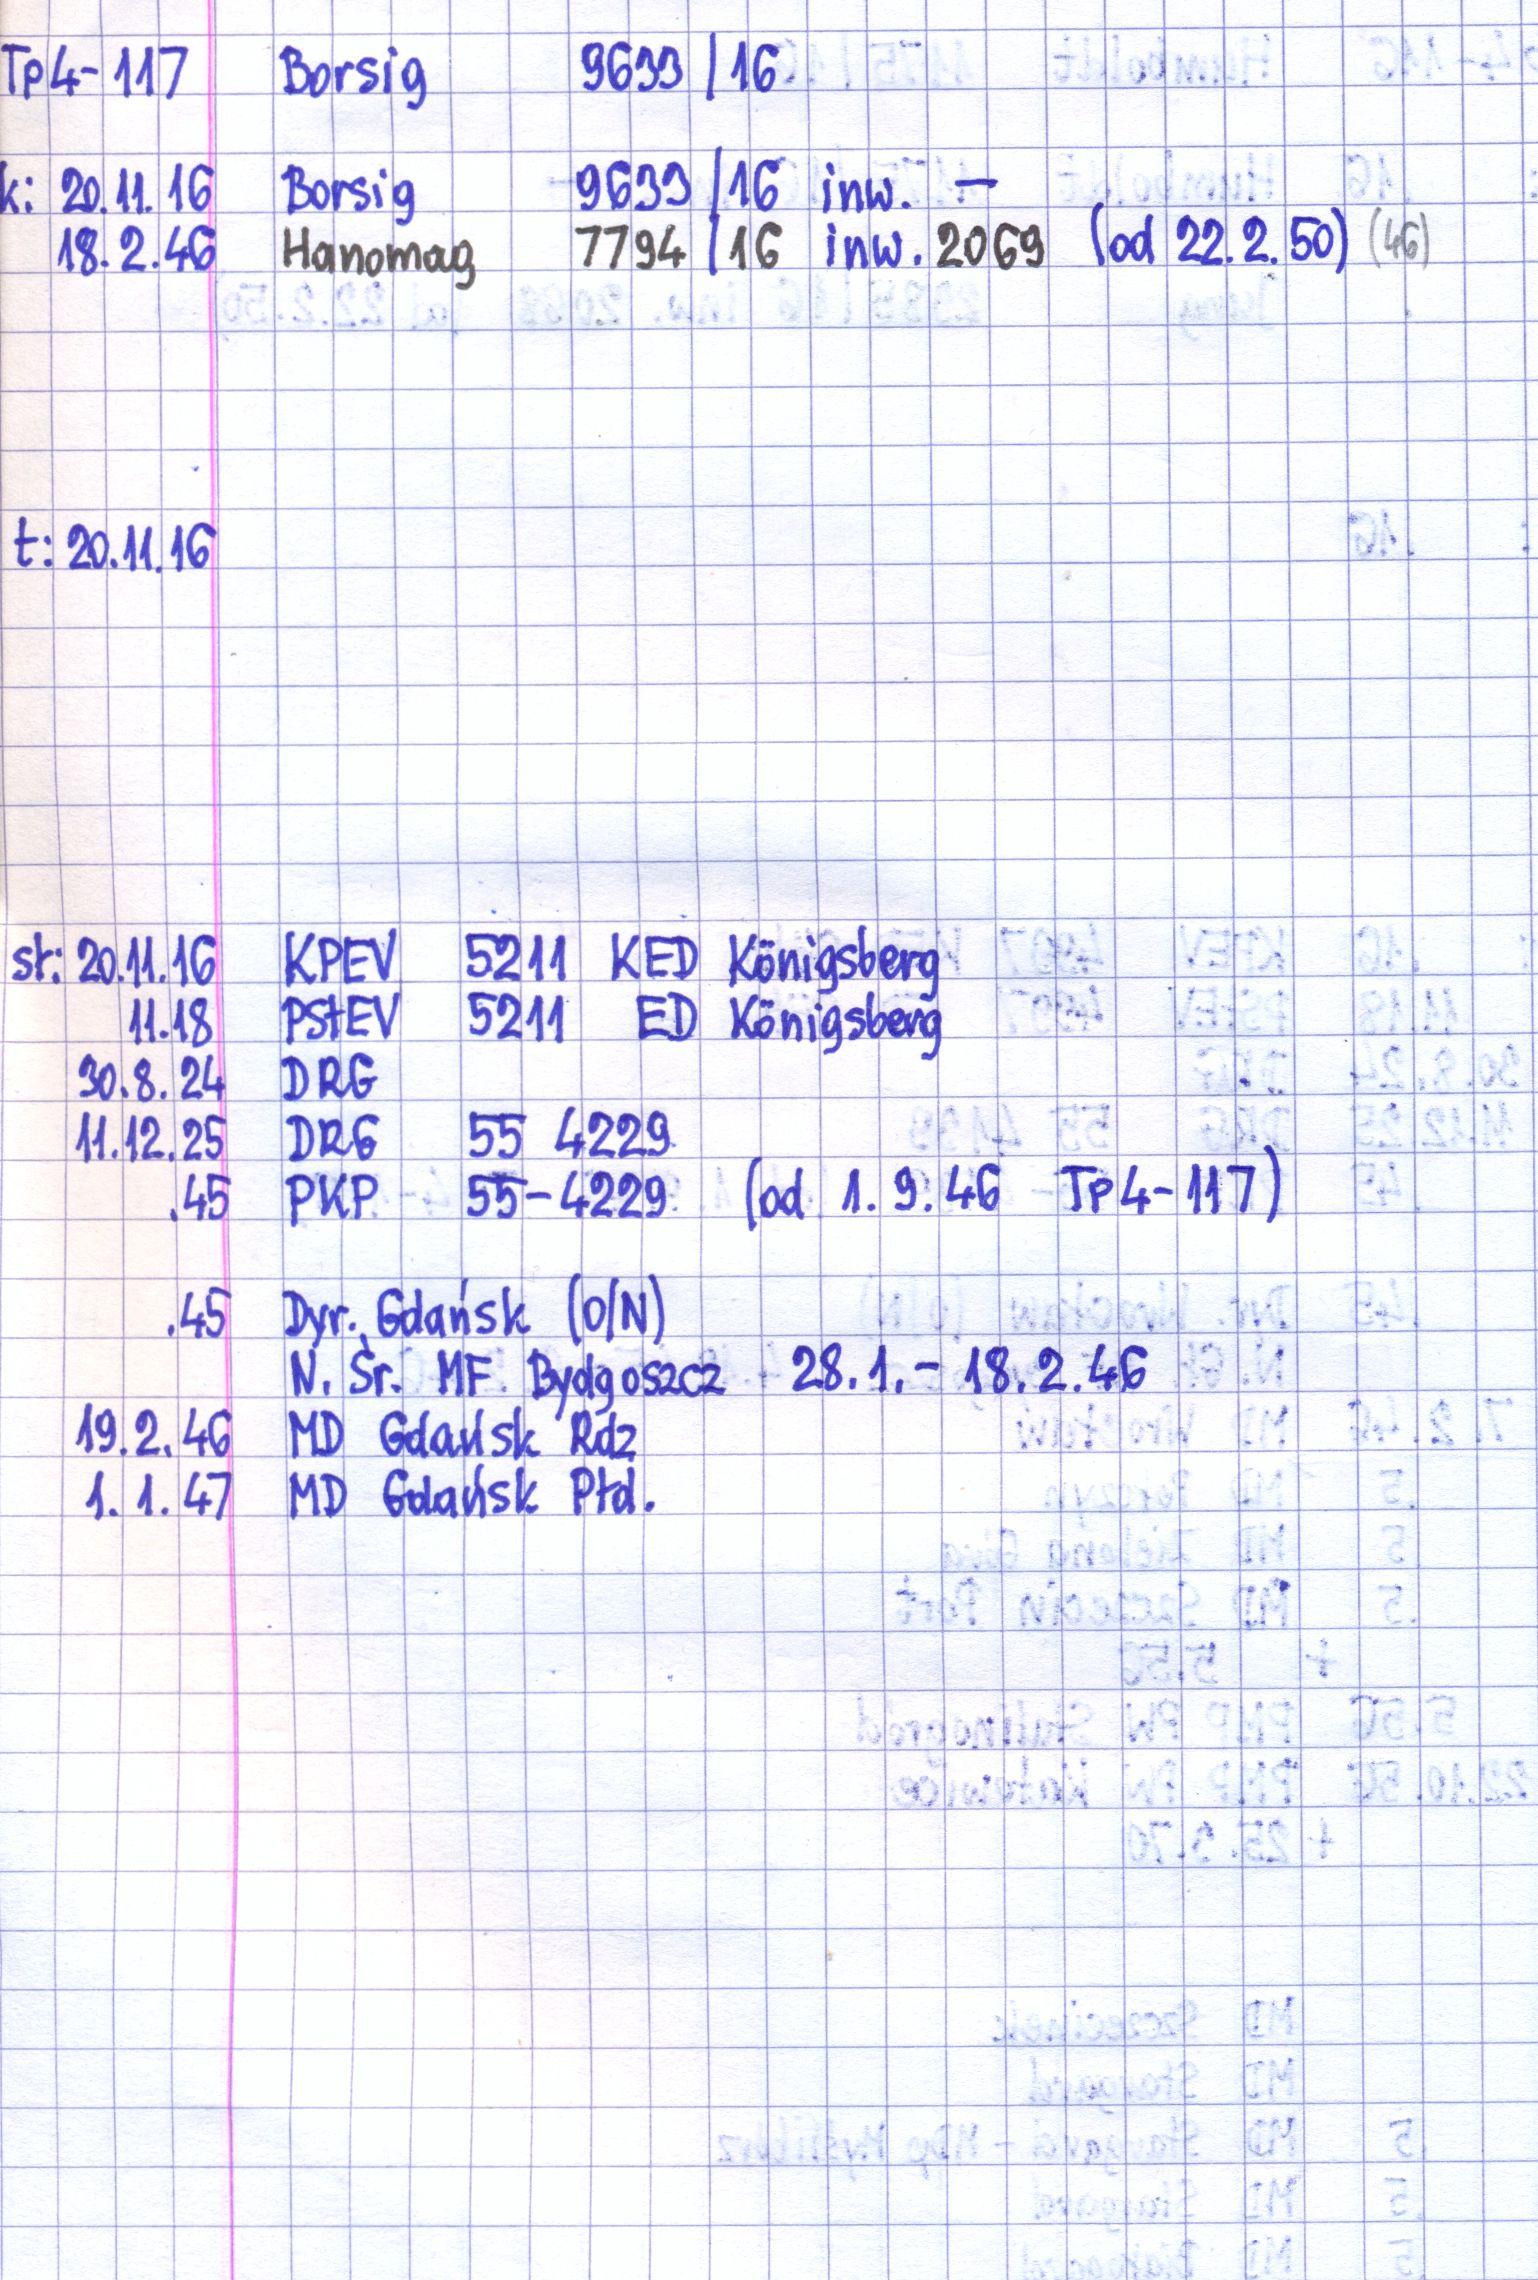 Tp4-117 Borsig 9633/16
k: 20.11.16 Borsig 9633/16 inw. –
18.2.46 Hanomag 7794/16 inw. 2069 (od 22.2.50) (46)
t: 20.11.16
st: 20.11.16 KPEV 5211 KED Königsberg
11.18 PStEV 5211 ED Königsberg
30.8.24 DRG
11.12.25 DRG 55 4229
.45 PKP 55-4229 (od 1.9.46 Tp4-117)
.45 Dyr. Gdańsk (O/N)
N. Śr. MF Bydgoszcz 28.1.- 18.2.46
19.2.46 MD Gdańsk Rdz
1.1.47 MD Gdańsk Płd.